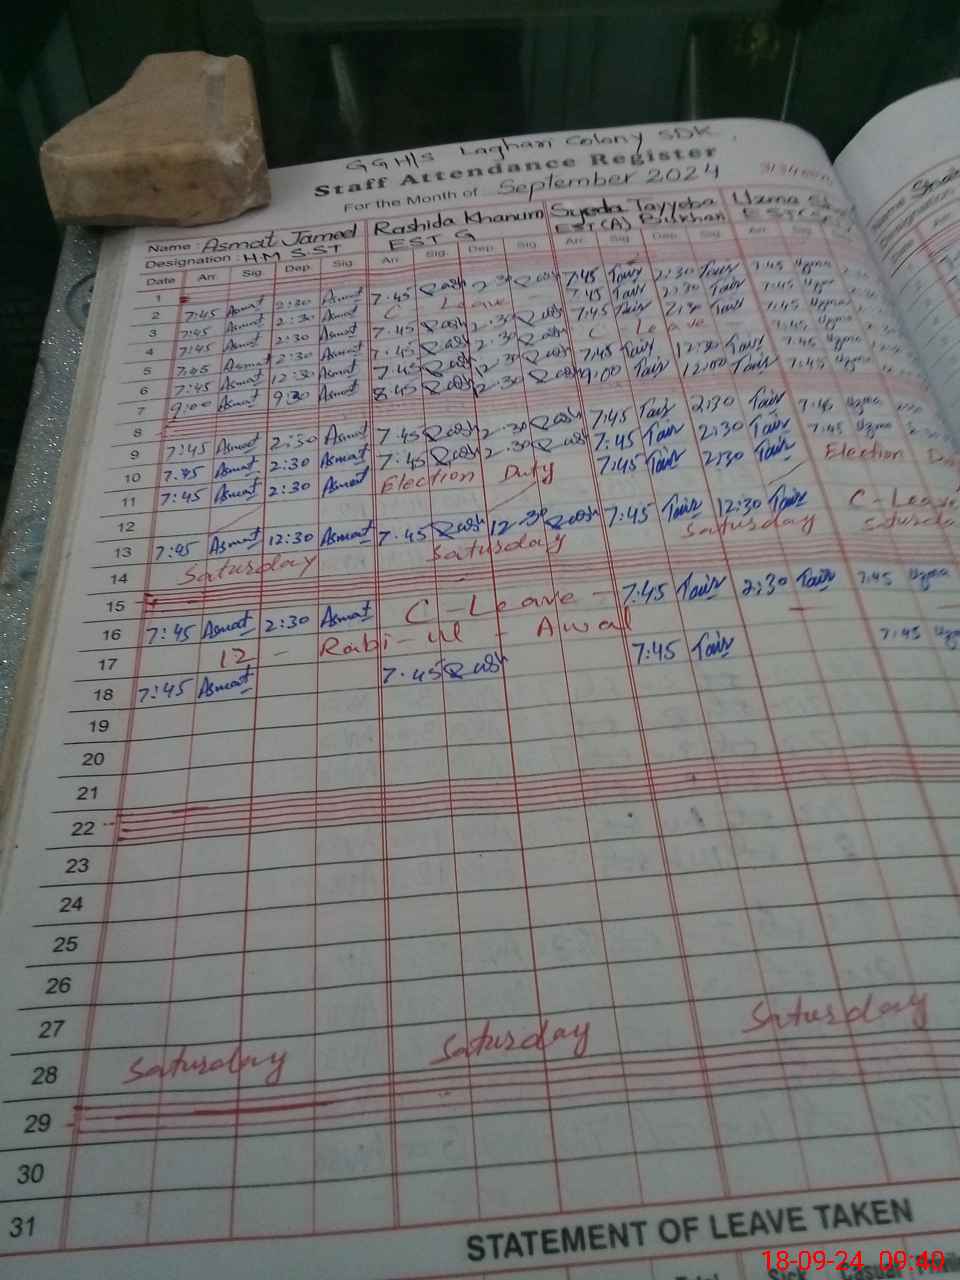 GGH/S Laghari Colony SDK
Staff Attendance Register
For the Month of September 2024
Name: Asmat Jameel Rashida Khanum Syeda Tayyeba Uzma
Designation: H.M S.ST EST G EST (A) Bukhari EST
Date Arr. Sig. Dep. Sig. Arr. Sig. Dep. Sig. Arr. Sig. Dep. Sig. Arr. Sig.
1
2 7:45 Asmat 2:30 Asmat 7:45 Rash 2:30 Rash 7:45 Tair 2:30 Tair 7:45 Uzma
3 7:45 Asmat 2:30 Asmat C Leave 7:45 Tair 2:30 Tair 7:45 Uzma
4 7:45 Asmat 2:30 Asmat 7:45 Rash 2:30 Rash 7:45 Tair 2:30 Tair 7:45 Uzma
5 7:45 Asmat 2:30 Asmat 7:45 Rash 2:30 Rash C Leave 7:45 Uzma
6 7:45 Asmat 12:30 Asmat 7:45 Rash 12:30 Rash 7:45 Tair 12:30 Tair 7:45 Uzma
7 9:00 Asmat 9:30 Asmat 8:45 Rash 12:30 Rash 9:00 Tair 12:00 Tair 7:45 Uzma
8
9 7:45 Asmat 2:30 Asmat 7:45 Rash 2:30 Rash 7:45 Tair 2:30 Tair 7:45 Uzma
10 7:45 Asmat 2:30 Asmat 7:45 Rash 2:30 Rash 7:45 Tair 2:30 Tair 7:45 Uzma
11 7:45 Asmat 2:30 Asmat Election Duty 7:45 Tair 2:30 Tair Election
12
13 7:45 Asmat 12:30 Asmat 7:45 Rash 12:30 Rash 7:45 Tair 12:30 Tair C-Leave
14 Saturday Saturday Saturday Saturda
15
16 7:45 Asmat 2:30 Asmat C-Leave- 7:45 Tair 2:30 Tair 7:45 Uzma
17 12 - Rabi-ul-Awal
18 7:45 Asmat 7:45 Rash 7:45 Tair 7:45
19
20
21
22
23
24
25
26
27
28 Saturday Saturday Saturday
29
30
31
STATEMENT OF LEAVE TAKEN
18-09-24 09:40